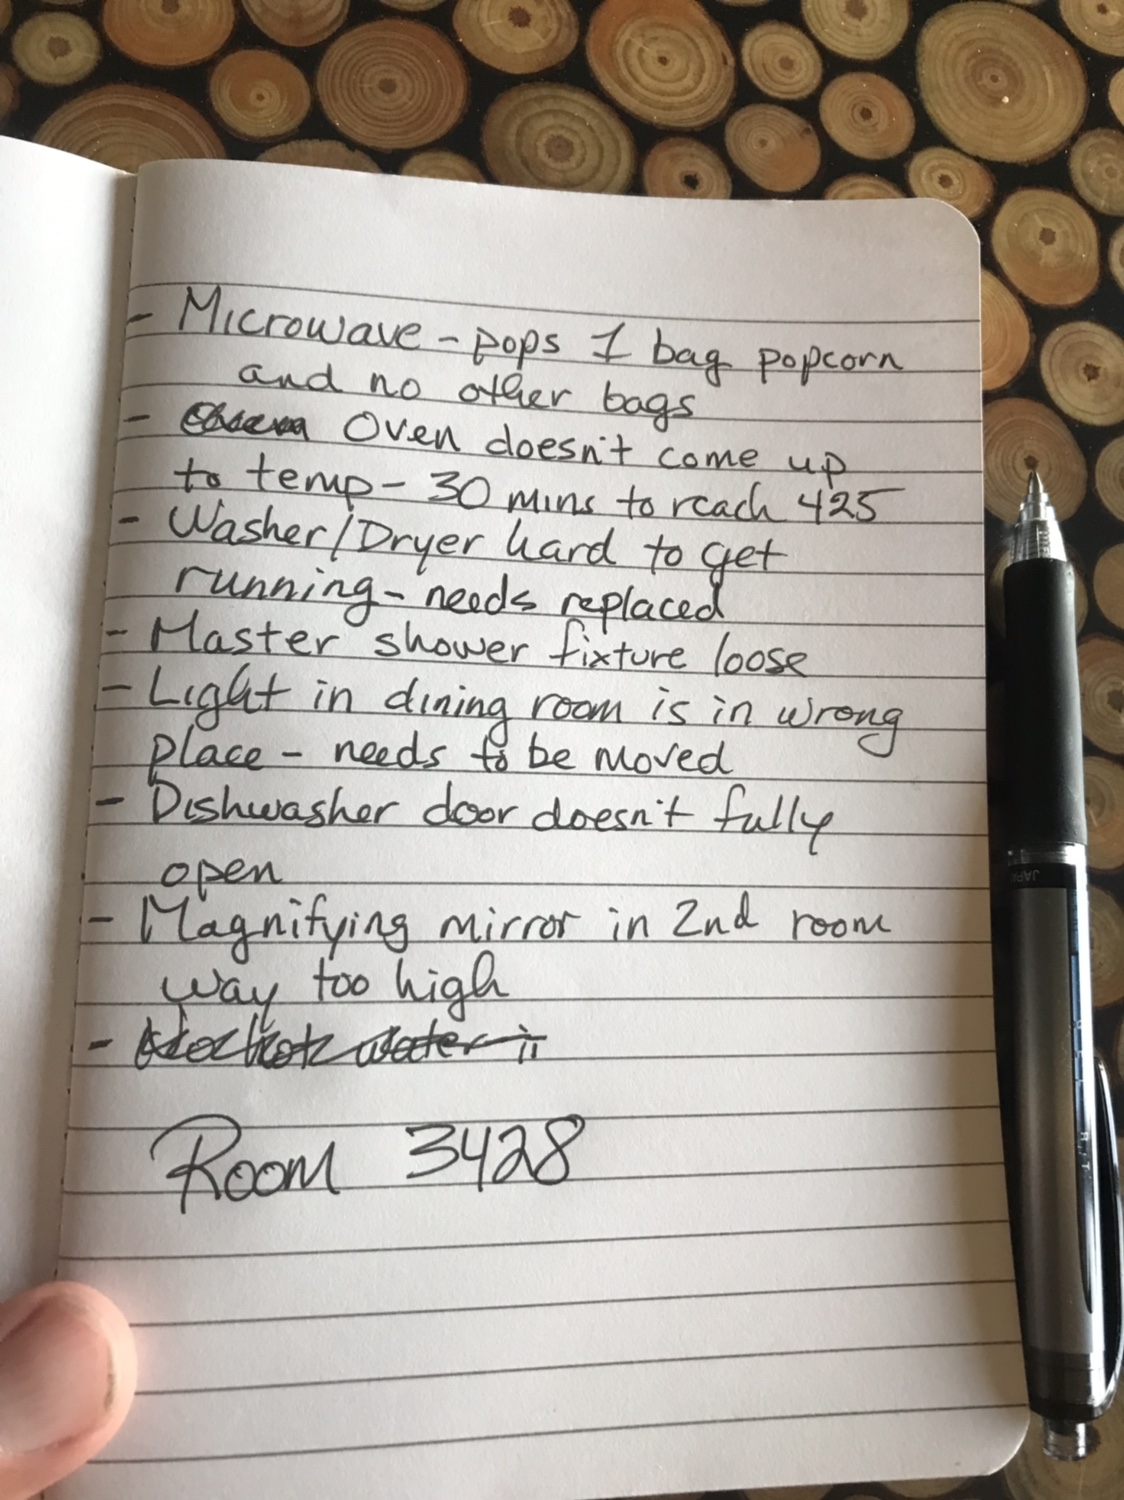 - Microwave - pops 1 bag popcorn
and no other bags
- Oven doesn't come up
to temp - 30 mins to reach 425
- Washer/Dryer hard to get
running - needs replaced
- Master shower fixture loose
- Light in dining room is in wrong
place - needs to be moved
- Dishwasher door doesn't fully
open
- Magnifying mirror in 2nd room
way too high
- hot water
Room 3428